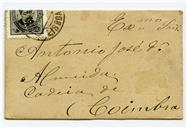 Ex.mo Snr.
Antonio José d'
Almeida
Cadeia de
Coimbra